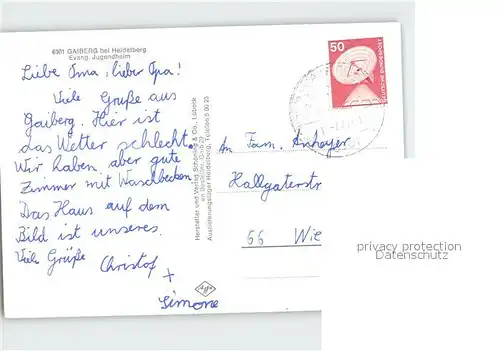 6901 GAIBERG bei Heidelberg
Evang. Jugendheim
Liebe Oma, lieber Opa!
Viele Grüße aus
Gaiberg. Hier ist
das Wetter schlecht.
Wir haben aber gute
Zimmer mit Waschbecken
Das Haus auf dem
Bild ist unseres.
Viele Grüße
Christof
+
Simone
Hersteller und Verlag Schöning & Co., Lübeck
Auslieferungslager Heidelberg
50
DEUTSCHE BUNDESPOST
An Fam.
Hallgaterstr
66 Wie
privacy protection
Datenschutz